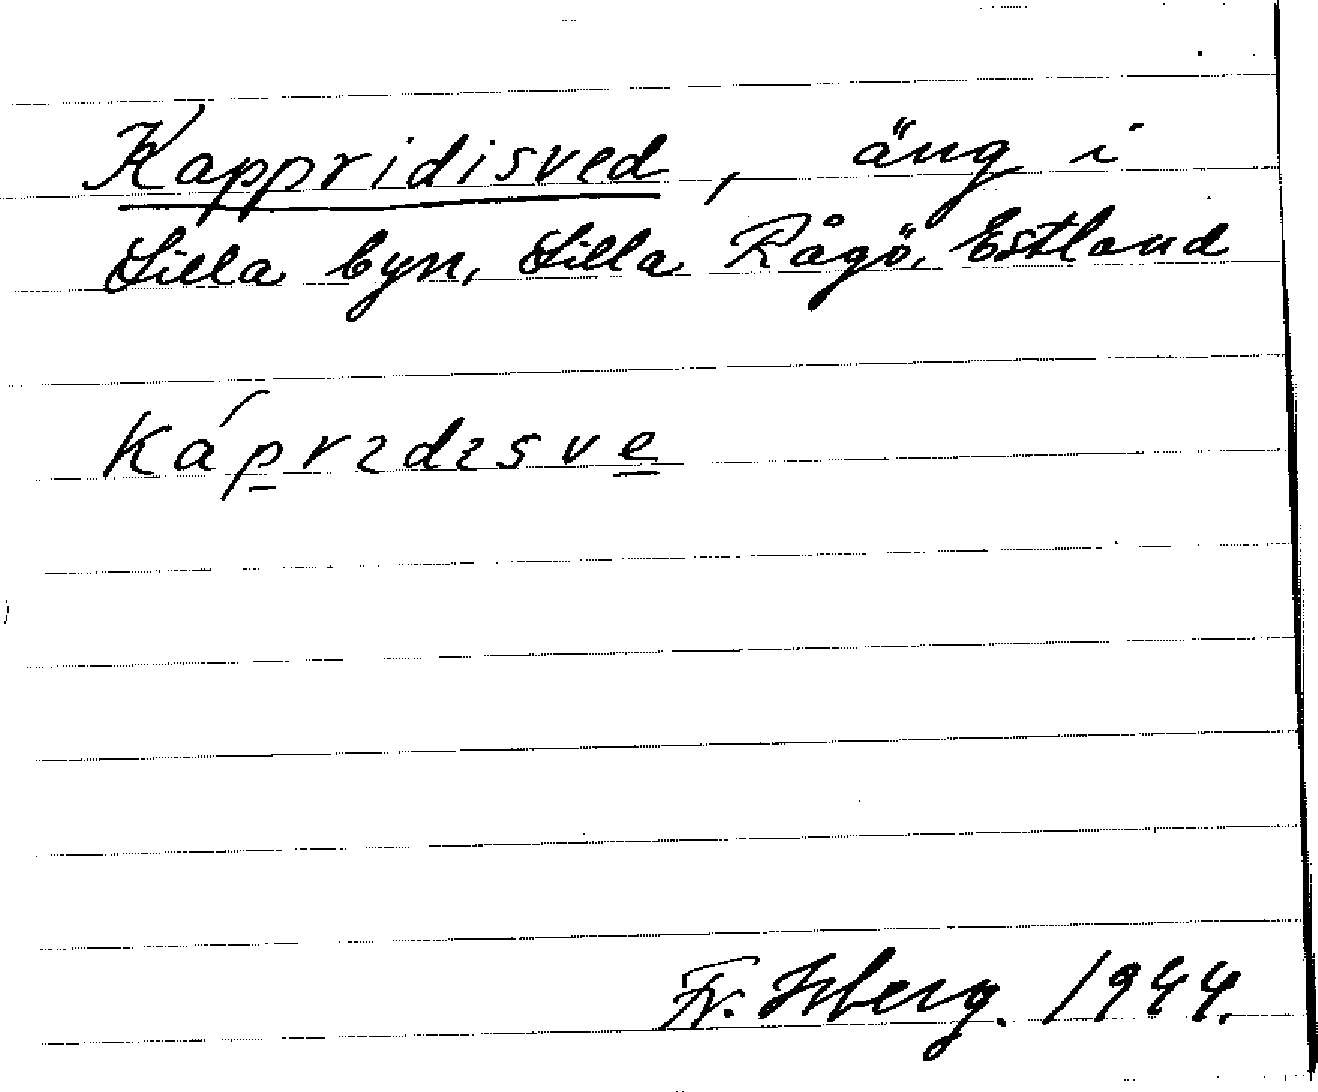 Kappridisved, äng i
Lilla byn, Lilla Rågö, Estland
káprɪdɪsve
Fr. Isberg. 1944.